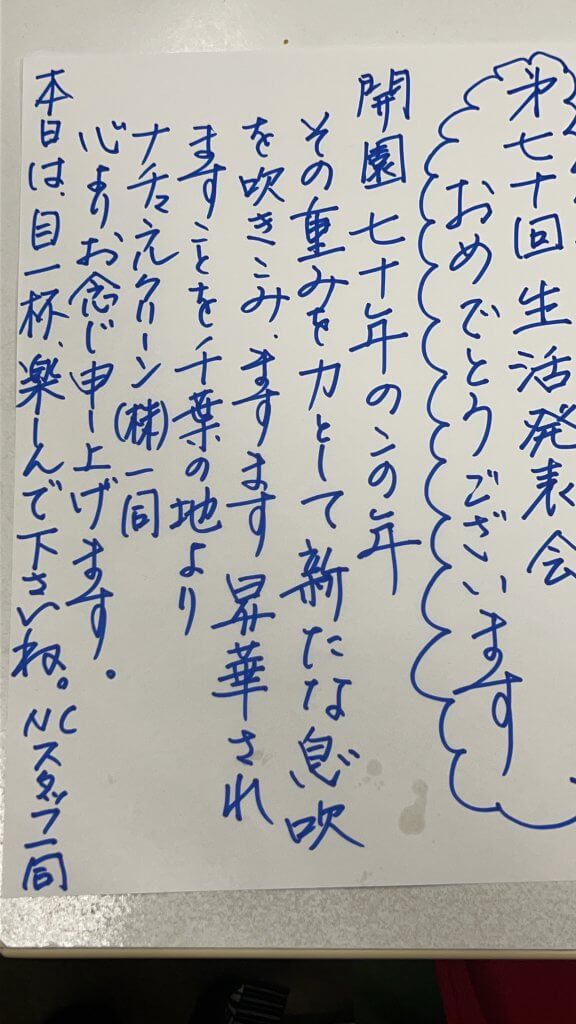 第七十回生活発表会
おめでとうございます
開園七十年のこの年
その重みを力として新たな息吹
を吹きこみ、ますます昇華され
ますことを千葉の地より
ナチュラルクリーン(株)一同
心よりお念じ申し上げます。
本日は、目一杯、楽しんで下さいね。NCスタッフ一同